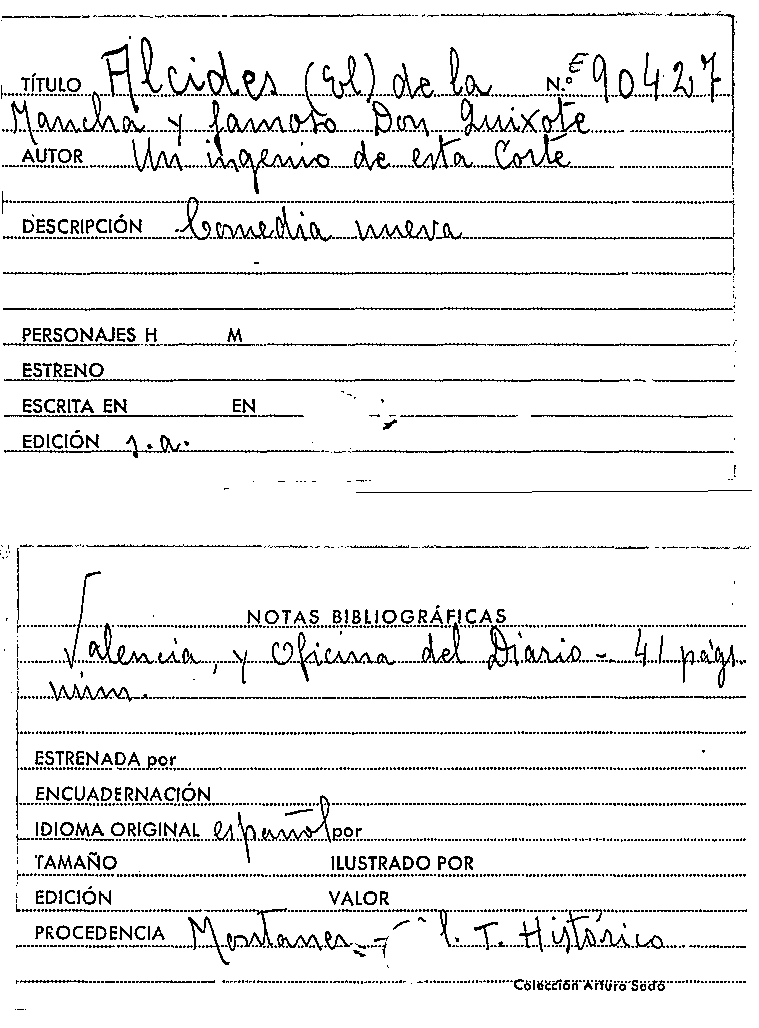 TÍTULO Alcides (El) de la N.º E 90427
Mancha y famoso Don Quixote
AUTOR Un ingenio de esta Corte
DESCRIPCIÓN Comedia nueva
PERSONAJES H M
ESTRENO
ESCRITA EN EN
EDICIÓN s.a.
NOTAS BIBLIOGRÁFICAS
Valencia, y Oficina del Diario - 41 págs.
núm.
ESTRENADA por
ENCUADERNACIÓN
IDIOMA ORIGINAL español por
TAMAÑO ILUSTRADO POR
EDICIÓN VALOR
PROCEDENCIA Montaner - T. Histórico
Colección Arturo Sedó